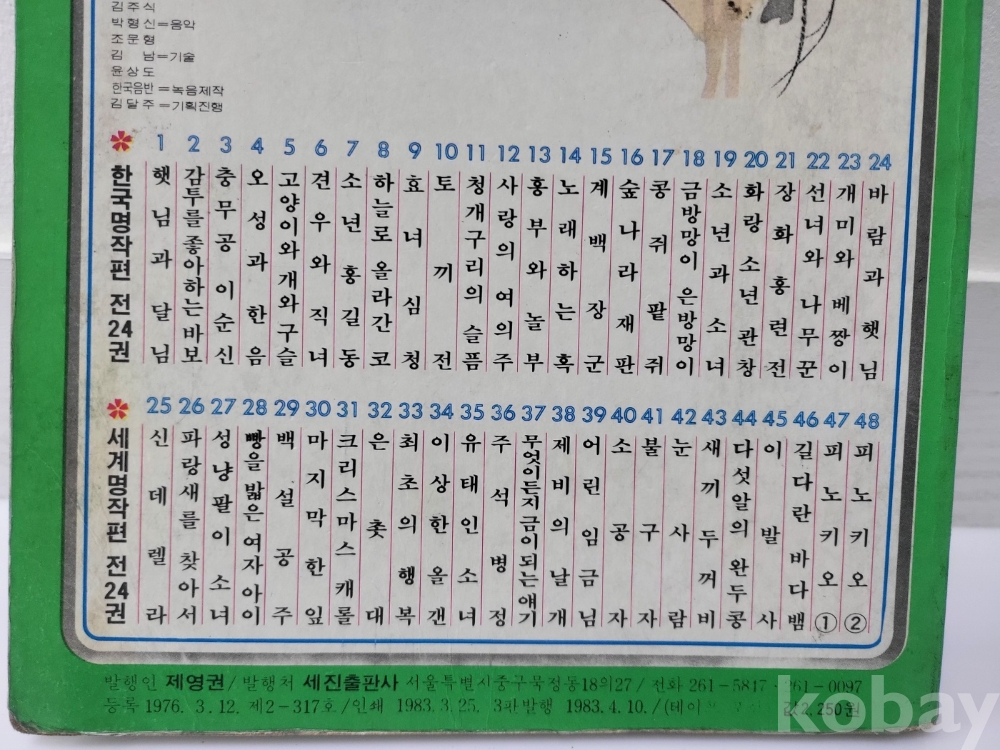 김주식
박형신=음악
조문형
김 남=기술
윤상도
한국음반=녹음제작
김달주=기획진행
한국명작편 전24권
1 햇님과달님
2 감투를좋아하는바보
3 충무공이순신
4 오성과한음
5 고양이와개와구슬
6 견우와직녀
7 소년홍길동
8 하늘로올라간코
9 효녀심청
10 토끼전
11 청개구리의슬픔
12 사랑의여의주
13 흥부와놀부
14 노래하는혹
15 계백장군
16 숲나라재판
17 콩쥐팥쥐
18 금방망이은방망이
19 소년과소녀
20 화랑소년관창
21 장화홍련전
22 선녀와나무꾼
23 개미와베짱이
24 바람과햇님
세계명작편 전24권
25 신데렐라
26 파랑새를찾아서
27 성냥팔이소녀
28 빵을밟은여자아이
29 백설공주
30 마지막한잎
31 크리스마스캐롤
32 은촛대
33 최초의행복
34 이상한올갠
35 유태인소녀
36 주석병정
37 무엇이든지금이되는얘기
38 제비의날개
39 어린임금님
40 소공자
41 불구자
42 눈사람
43 새끼두꺼비
44 다섯알의완두콩
45 이발사
46 길다란바다뱀
47 피노키오①
48 피노키오②
발행인 제영권/발행처 세진출판사 서울특별시중구묵정동18의27/전화 261-5817·261-0097
등록 1976. 3. 12. 제2-317호/인쇄 1983. 3. 25. 3판발행 1983. 4. 10./(테이 값2,250원
kobay